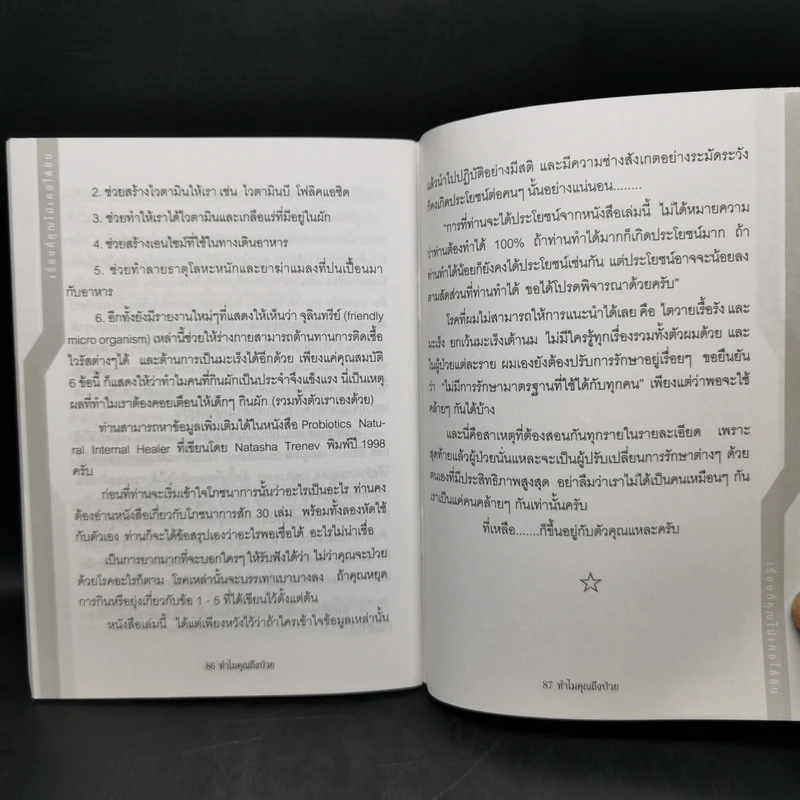 เรื่องที่คุณไม่เคยได้ยิน
2. ช่วยสร้างไวตามินให้เรา เช่น ไวตามินบี โฟลิคแอซิด
3. ช่วยทำให้เราได้ไวตามินและเกลือแร่ที่มีอยู่ในผัก
4. ช่วยสร้างเอนไซม์ที่ใช้ในทางเดินอาหาร
5. ช่วยทำลายธาตุโลหะหนักและยาฆ่าแมลงที่ปนเปื้อนมา
กับอาหาร
6. อีกทั้งยังมีรายงานใหม่ๆที่แสดงให้เห็นว่า จุลินทรีย์ (friendly
micro organism) เหล่านี้ช่วยให้ร่างกายสามารถต้านทานการติดเชื้อ
ไวรัสต่างๆได้ และต้านการเป็นมะเร็งได้อีกด้วย เพียงแค่คุณสมบัติ
6 ข้อนี้ ก็แสดงให้ว่าทำไมคนที่กินผักเป็นประจำจึงแข็งแรง นี่เป็นเหตุ
ผลที่ทำไมเราต้องคอยเตือนให้เด็กๆ กินผัก (รวมทั้งตัวเราเองด้วย)
ท่านสามารถหาข้อมูลเพิ่มเติมได้ในหนังสือ Probiotics Natu-
ral Internal Healer ที่เขียนโดย Natasha Trenev พิมพ์ปี 1998
ครับ
ก่อนที่ท่านจะเริ่มเข้าใจโภชนาการนั้นว่าอะไรเป็นอะไร ท่านคง
ต้องอ่านหนังสือเกี่ยวกับโภชนาการสัก 30 เล่ม พร้อมทั้งลองหัดใช้
กับตัวเอง ท่านก็จะได้ข้อสรุปเองว่าอะไรพอเชื่อได้ อะไรไม่น่าเชื่อ
เป็นการยากมากที่จะบอกใครๆ ให้รับฟังได้ว่า ไม่ว่าคุณจะป่วย
ด้วยโรคอะไรก็ตาม โรคเหล่านั้นจะบรรเทาเบาบางลง ถ้าคุณหยุด
การกินหรือยุ่งเกี่ยวกับข้อ 1 - 5 ที่ได้เขียนไว้ตั้งแต่ต้น
หนังสือเล่มนี้ ได้แต่เพียงหวังไว้ว่าถ้าใครเข้าใจข้อมูลเหล่านั้น
86 ทำไมคุณถึงป่วย
แล้วนำไปปฏิบัติอย่างมีสติ และมีความช่างสังเกตอย่างระมัดระวัง
ก็คงเกิดประโยชน์ต่อคนๆ นั้นอย่างแน่นอน........
"การที่ท่านจะได้ประโยชน์จากหนังสือเล่มนี้ ไม่ได้หมายความ
ว่าท่านต้องทำได้ 100% ถ้าท่านทำได้มากก็เกิดประโยชน์มาก ถ้า
ท่านทำได้น้อยก็ยังคงได้ประโยชน์เช่นกัน แต่ประโยชน์อาจจะน้อยลง
ตามสัดส่วนที่ท่านทำได้ ขอได้โปรดพิจารณาด้วยครับ"
โรคที่ผมไม่สามารถให้การแนะนำได้เลย คือ ไตวายเรื้อรัง และ
มะเร็ง ยกเว้นมะเร็งเต้านม ไม่มีใครรู้ทุกเรื่องรวมทั้งตัวผมด้วย และ
ในผู้ป่วยแต่ละราย ผมเองยังต้องปรับการรักษาอยู่เรื่อยๆ ขอยืนยัน
ว่า "ไม่มีการรักษามาตรฐานที่ใช้ได้กับทุกคน" เพียงแต่ว่าพอจะใช้
คล้ายๆ กันได้บ้าง
และนี่คือสาเหตุที่ต้องสอนกันทุกรายในรายละเอียด เพราะ
สุดท้ายแล้วผู้ป่วยนั่นแหละจะเป็นผู้ปรับเปลี่ยนการรักษาต่างๆ ด้วย
ตนเองที่มีประสิทธิภาพสูงสุด อย่าลืมว่าเราไม่ได้เป็นคนเหมือนๆ กัน
เราเป็นแค่คนคล้ายๆ กันเท่านั้นครับ
ที่เหลือ.......ก็ขึ้นอยู่กับตัวคุณแหละครับ
87 ทำไมคุณถึงป่วย
เรื่องที่คุณไม่เคยได้ยิน